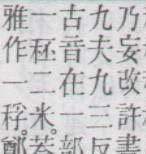 乃妄改許書
九夫九三反
古音在一部
一秠二米。
雅作一稃。鄭